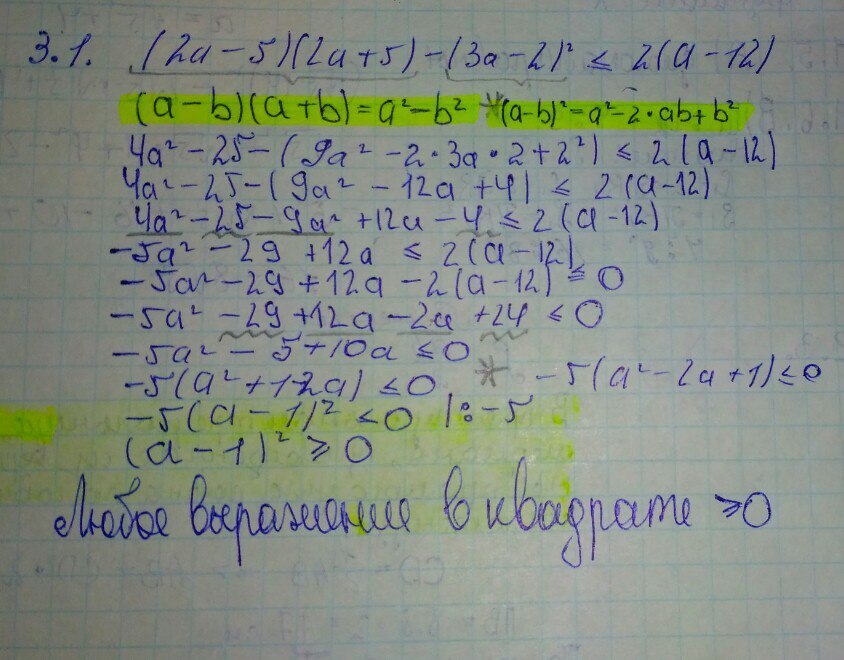 3.1. (2a-5)(2a+5)-(3a-2)² ≤ 2(a-12)
(a-b)(a+b)=a²-b² * (a-b)²=a²-2•ab+b²
4a²-25-(9a²-2•3a•2+2²) ≤ 2(a-12)
4a²-25-(9a²-12a+4) ≤ 2(a-12)
4a²-25-9a²+12a-4 ≤ 2(a-12)
-5a²-29+12a ≤ 2(a-12)
-5a²-29+12a-2(a-12) ≤ 0
-5a²-29+12a-2a+24 ≤ 0
-5a²-5+10a ≤ 0
-5(a²+1-2a) ≤ 0 * -5(a²-2a+1) ≤ 0
-5(a-1)² ≤ 0 |:-5
(a-1)² ≥ 0
Любое выражение в квадрате ≥0